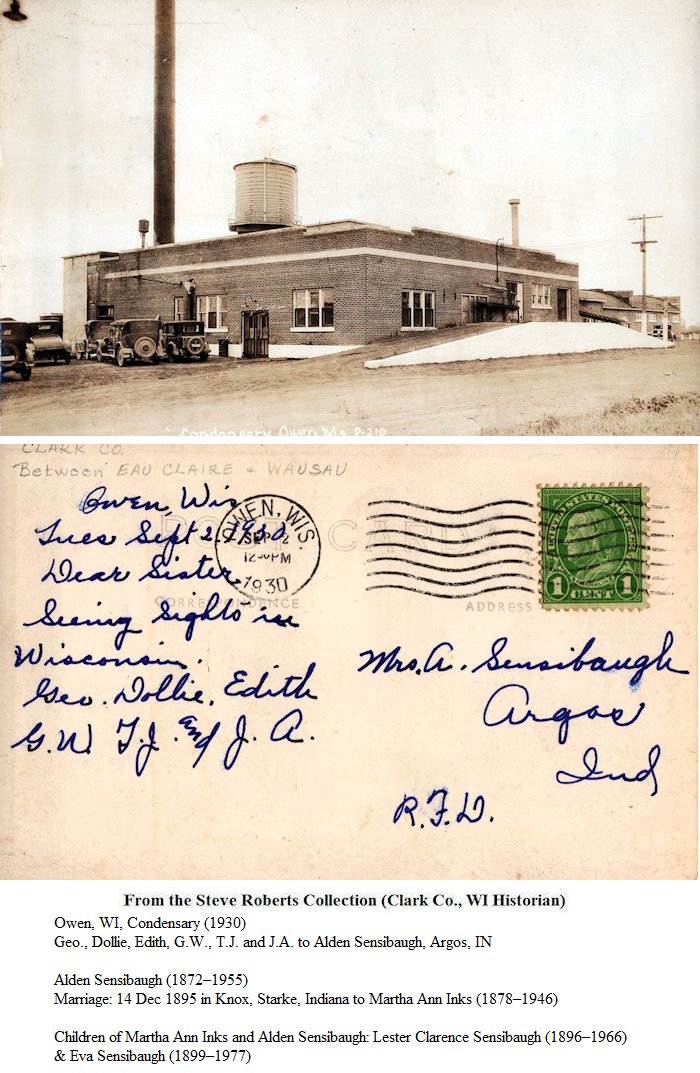 Condensary Owen Wis P-210
CLARK CO.
Between EAU CLAIRE & WAUSAU
POST CARD
Owen, Wis
Tues Sept 2, 1930
Dear Sister
Seeing sights in
Wisconsin.
Geo. Dollie, Edith
G.W. T.J. and J. A.
OWEN, WIS.
SEP 2
12 30 PM
1930
CORRESPONDENCE
ADDRESS
UNITED STATES POSTAGE
FRANKLIN
1 CENT 1
Mrs. A. Sensibaugh
Argos
Ind
R.F.D.
From the Steve Roberts Collection (Clark Co., WI Historian)
Owen, WI, Condensary (1930)
Geo., Dollie, Edith, G.W., T.J. and J.A. to Alden Sensibaugh, Argos, IN
Alden Sensibaugh (1872–1955)
Marriage: 14 Dec 1895 in Knox, Starke, Indiana to Martha Ann Inks (1878–1946)
Children of Martha Ann Inks and Alden Sensibaugh: Lester Clarence Sensibaugh (1896–1966)
& Eva Sensibaugh (1899–1977)